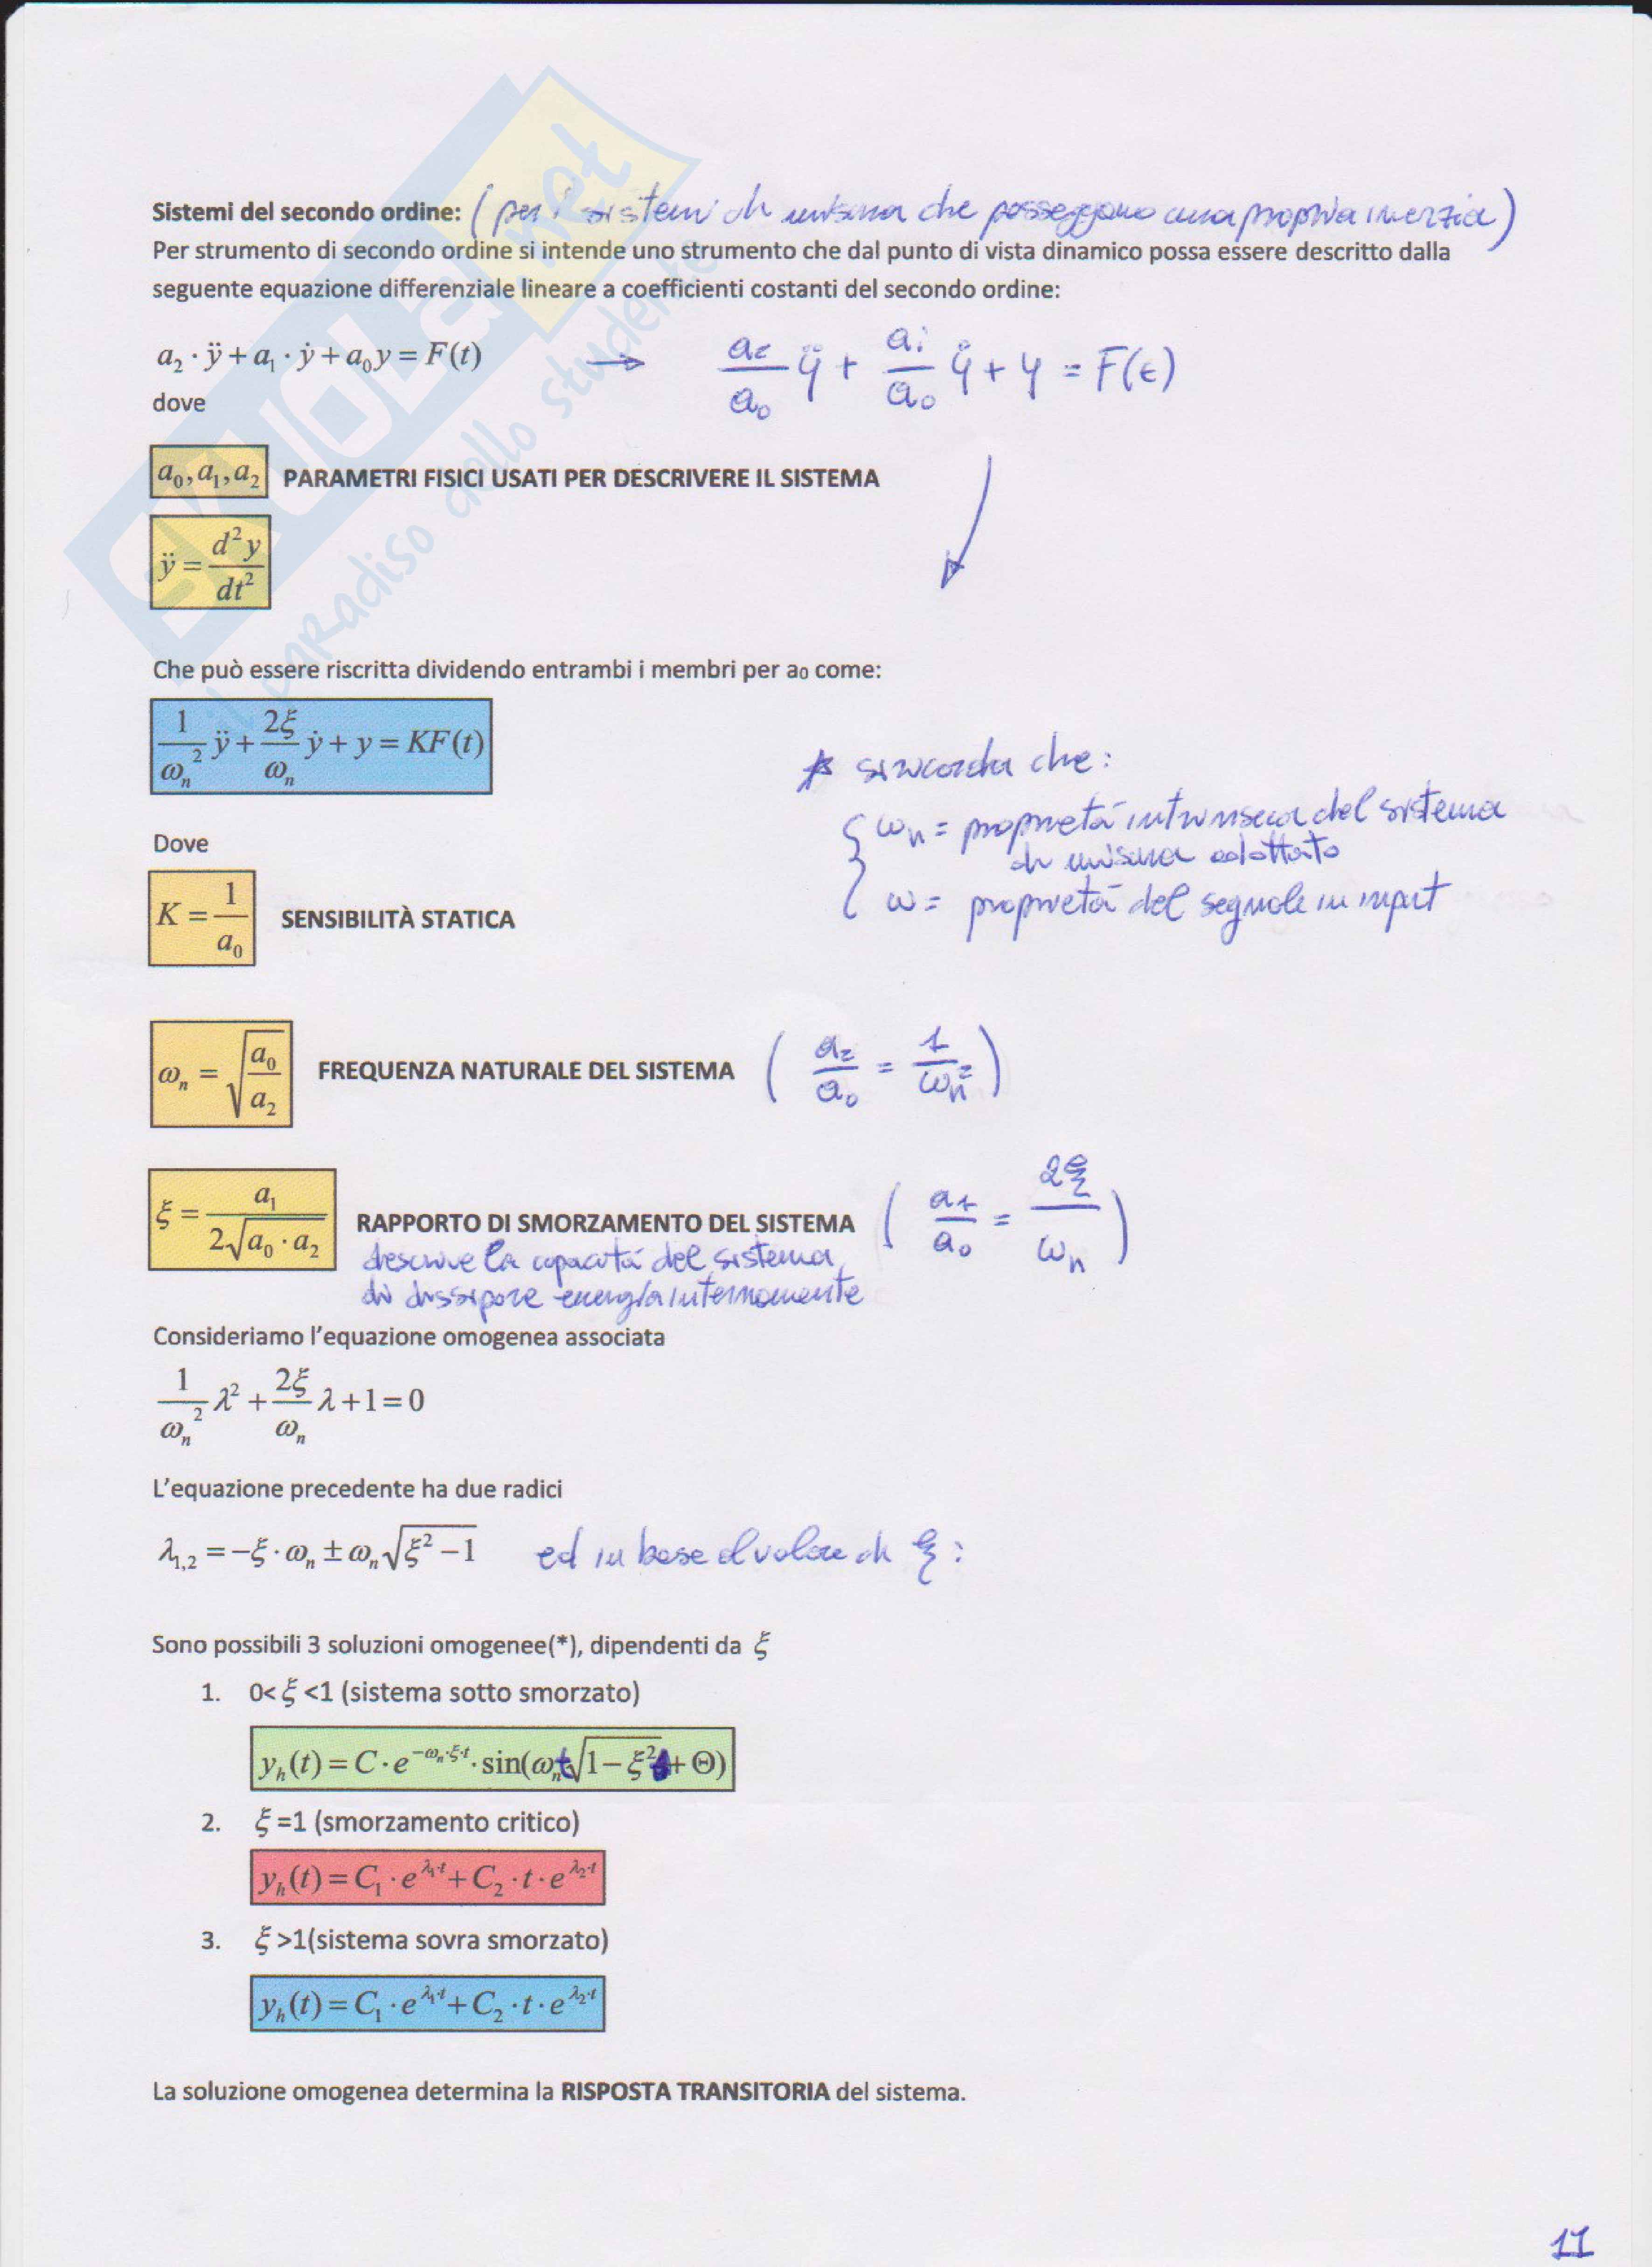 Sistemi del secondo ordine: (per i sistemi di misura che posseggono una propria inerzia)
Per strumento di secondo ordine si intende uno strumento che dal punto di vista dinamico possa essere descritto dalla
seguente equazione differenziale lineare a coefficienti costanti del secondo ordine:
a₂ · ÿ + a₁ · ẏ + a₀y = F(t) → a₂/a₀ ÿ + a₁/a₀ ẏ + y = F(t)
dove
a₀, a₁, a₂ PARAMETRI FISICI USATI PER DESCRIVERE IL SISTEMA
ÿ = d²y/dt²
SKUOLA.net
il paradiso dello studente
Che può essere riscritta dividendo entrambi i membri per a₀ come:
1/ωₙ² ÿ + 2ξ/ωₙ ẏ + y = KF(t)
* si ricorda che:
ωₙ = proprietà intrinseca del sistema
di misura adottato
ω = proprietà del segnale in input
Dove
K = 1/a₀ SENSIBILITÀ STATICA
ωₙ = √(a₀/a₂) FREQUENZA NATURALE DEL SISTEMA (a₂/a₀ = 1/ωₙ²)
ξ = a₁/(2√(a₀ · a₂)) RAPPORTO DI SMORZAMENTO DEL SISTEMA (a₁/a₀ = 2ξ/ωₙ)
descrive la capacità del sistema
di dissipare energia internamente
Consideriamo l'equazione omogenea associata
1/ωₙ² λ² + 2ξ/ωₙ λ + 1 = 0
L'equazione precedente ha due radici
λ₁,₂ = −ξ · ωₙ ± ωₙ√(ξ² − 1) ed in base al valore di ξ :
Sono possibili 3 soluzioni omogenee(*), dipendenti da ξ
1. 0< ξ <1 (sistema sotto smorzato)
yₕ(t) = C · e^(−ωₙ·ξ·t) · sin(ωₙt√(1 − ξ²) + Θ)
2. ξ =1 (smorzamento critico)
yₕ(t) = C₁ · e^(λ₁·t) + C₂ · t · e^(λ₂·t)
3. ξ >1(sistema sovra smorzato)
yₕ(t) = C₁ · e^(λ₁·t) + C₂ · t · e^(λ₂·t)
La soluzione omogenea determina la RISPOSTA TRANSITORIA del sistema.
11